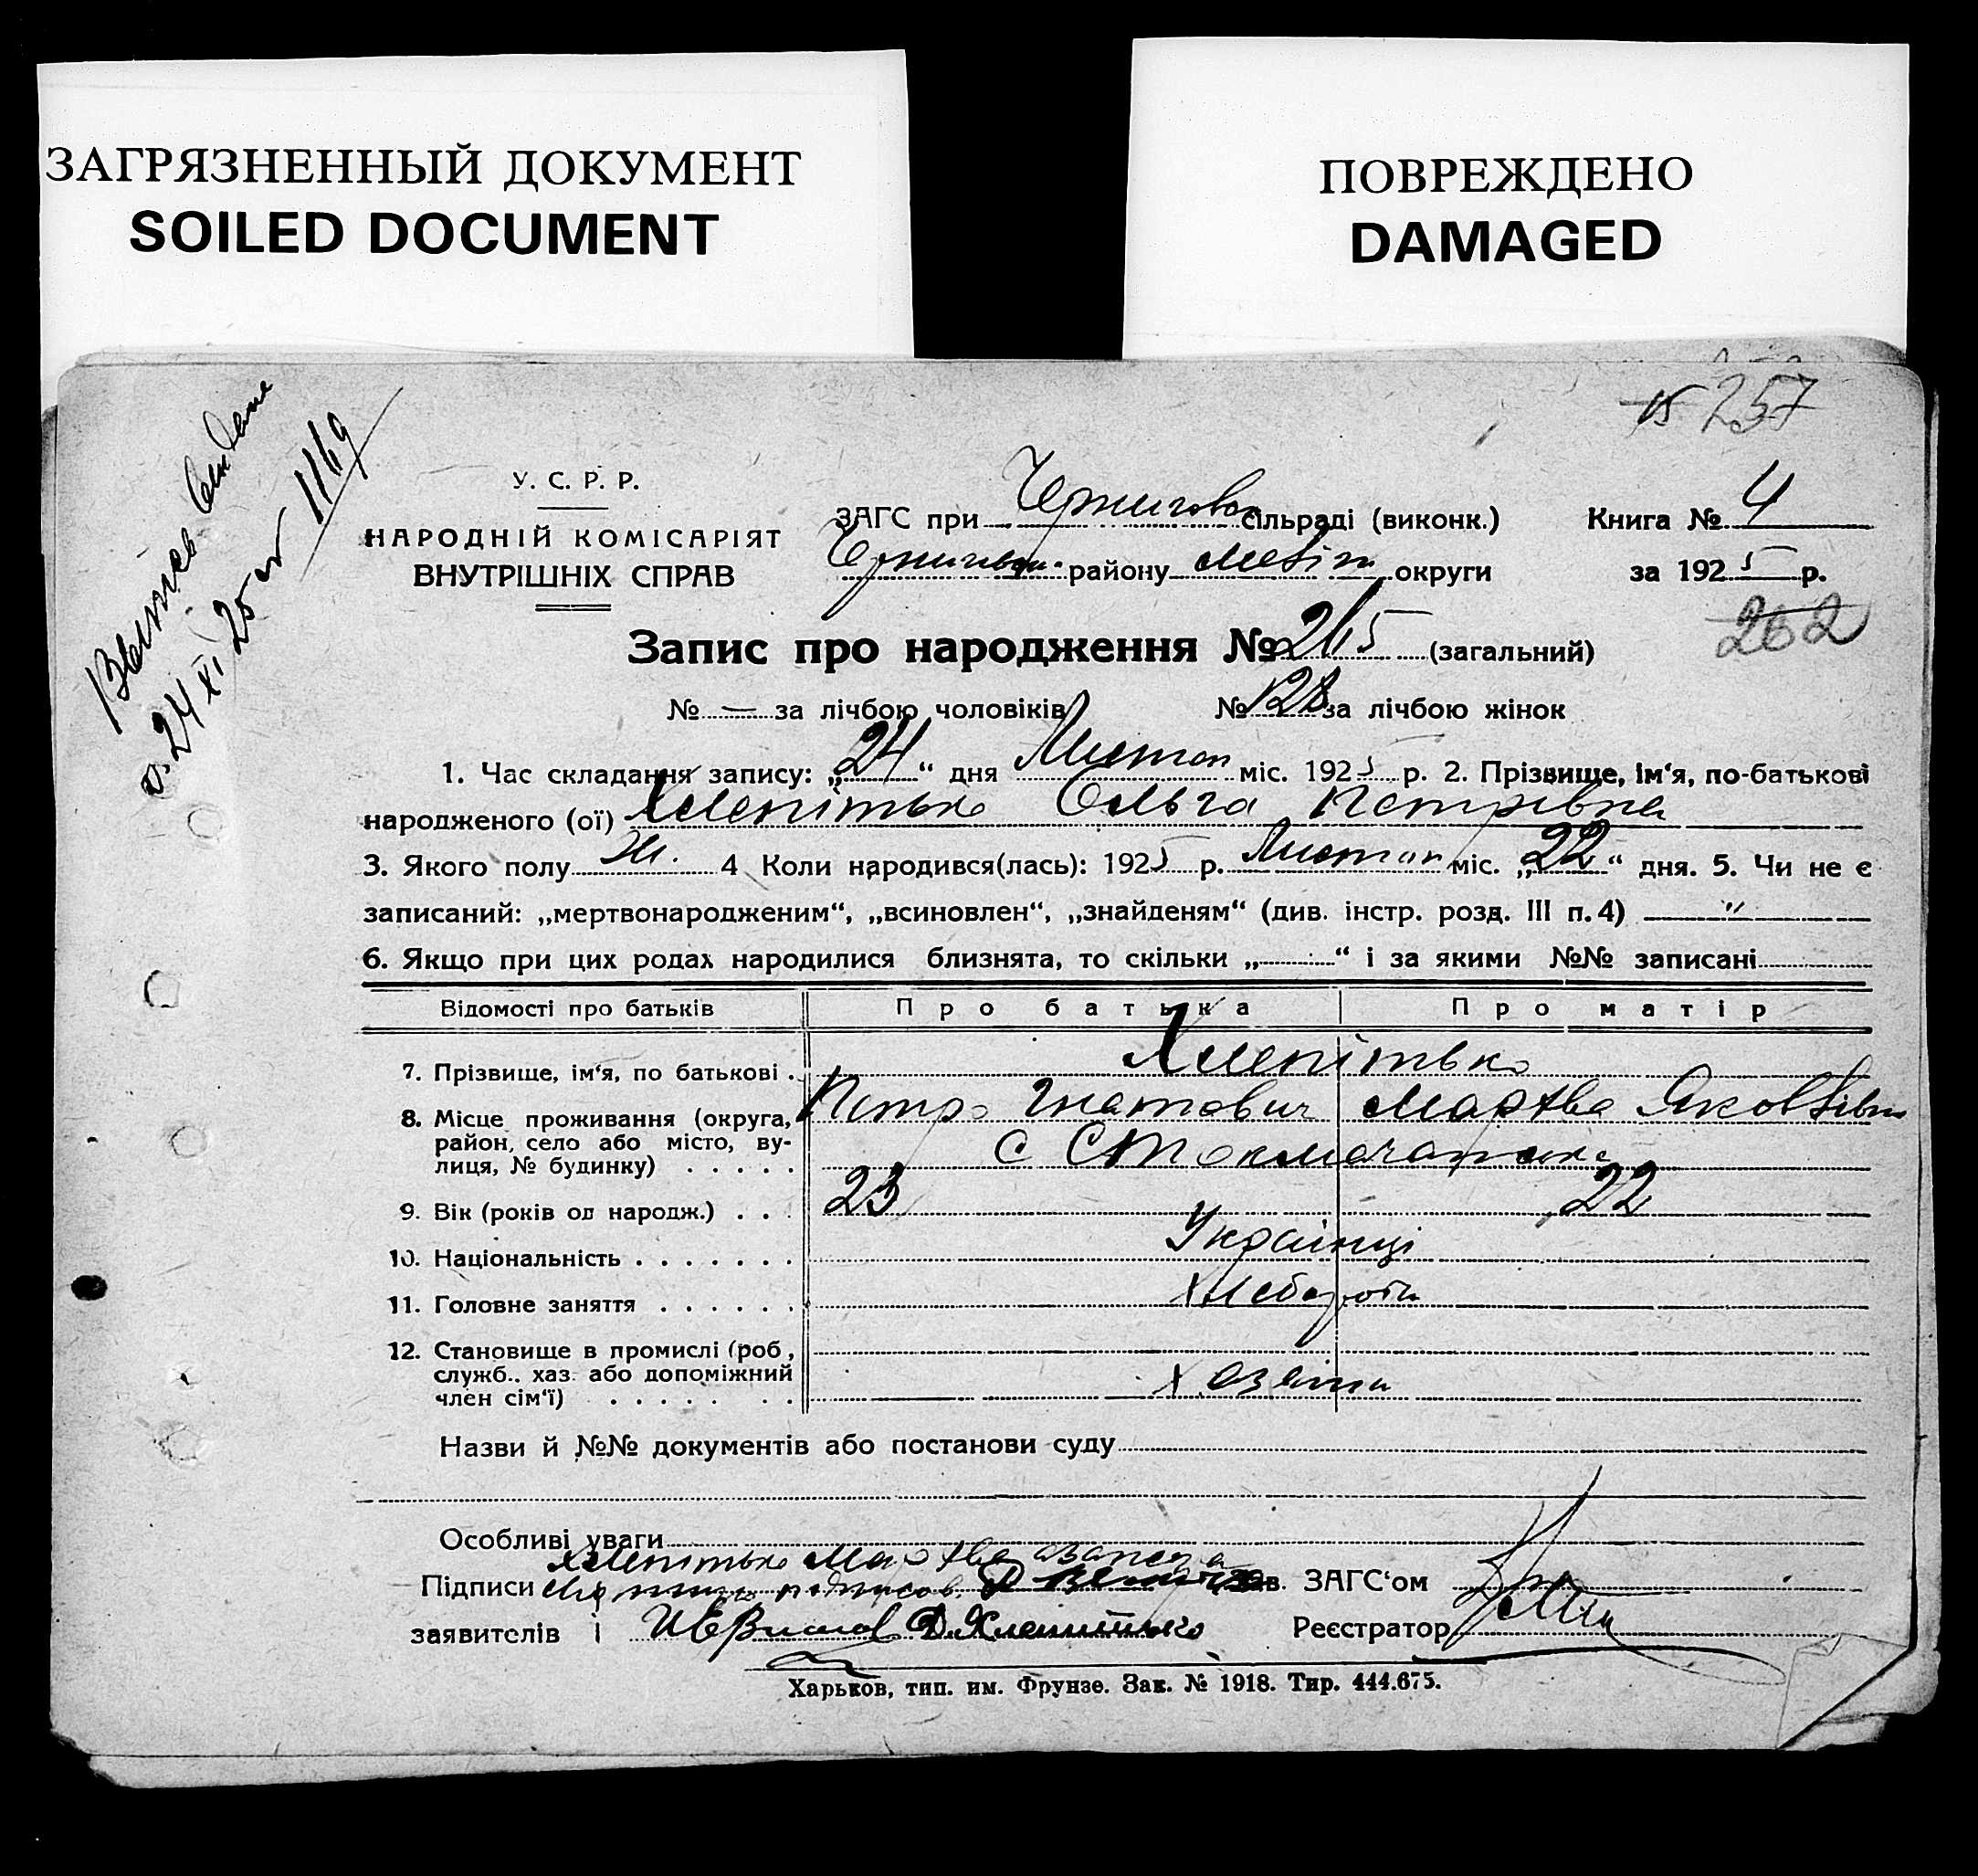 ЗАГРЯЗНЕННЫЙ ДОКУМЕНТ
SOILED DOCUMENT
ПОВРЕЖДЕНО
DAMAGED
257
24 XI 25 1169
У. С. Р. Р.
НАРОДНІЙ КОМІСАРІЯТ
ВНУТРІШНІХ СПРАВ
ЗАГС при Черниговск сільраді (виконк.)
району Меліт округи
Книга № 4
за 1925 р.
262
Запис про народження № 265 (загальний)
№ — за лічбою чоловіків № 128 за лічбою жінок
1. Час складання запису: „24“ дня Листоп міс. 1925 р. 2. Прізвище, ім‘я, по-батькові
народженого (ої) Хлепітько Ольга Петрівна
3. Якого полу Ж. 4 Коли народився(лась): 1925 р. Листоп міс. „22“ дня. 5. Чи не є
записаний: „мертвонародженим“, „всиновлен“, „знайденям“ (див. інстр. розд. III п. 4) "
6. Якщо при цих родах народилися близнята, то скільки „ “ і за якими №№ записані
Відомості про батьків Про батька Про матір
7. Прізвище, ім‘я, по батькові . Хлепітько
Петро Гнатович Марфва Яковлівна
8. Місце проживання (округа, район, село або місто, вулиця, № будинку) . . . . . с
9. Вік (років од народж.) . . . 23 22
10. Національність . . . . . . . Українці
11. Головне заняття . . . . . . хлебороби
12. Становище в промислі (роб, служб., хаз. або допоміжний член сім‘ї) . . . . . . . хазяїни
Назви й №№ документів або постанови суду
Особливі уваги
Хлепітько
Підписи Зав. ЗАГС‘ом
заявителів і Д. Хлепитько Реєстратор
Харьков, тип. им. Фрунзе. Зак. № 1918. Тир. 444.675.